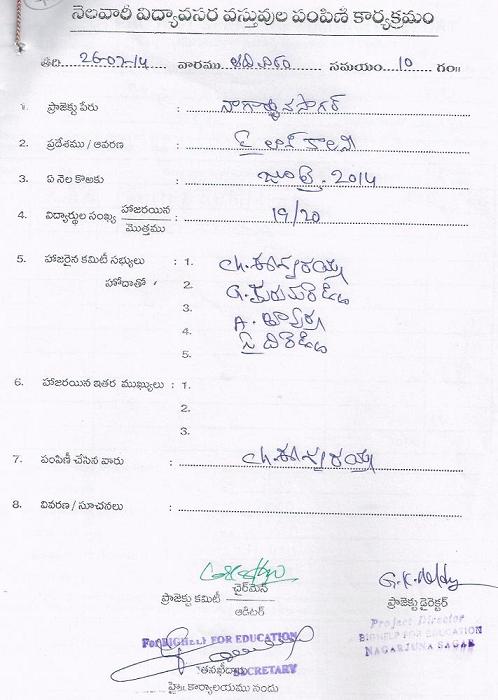 నెలవారీ విద్యావసర వస్తువుల పంపిణీ కార్యక్రమం
తేది 26-07-14 వారము శనివారం సమయం 10 గం॥
1. ప్రాజెక్టు పేరు : నాగార్జునసాగర్
2. ప్రదేశము / ఆవరణ : పైలాన్ కాలనీ
3. ఏ నెల కొఱకు : జూలై - 2014
4. విద్యార్థుల సంఖ్య హాజరయిన / మొత్తము : 19/20
5. హాజరైన కమిటీ సభ్యులు : 1. Ch. ఈశ్వరయ్య
హోదాతో 2. G.
3. A.
4.
5.
6. హాజరయిన ఇతర ముఖ్యులు : 1.
2.
3.
7. పంపిణీ చేసిన వారు : Ch. ఈశ్వరయ్య
8. వివరణ / సూచనలు :
G.K. Reddy
ప్రాజెక్టు కమిటీ చైర్‌మెన్ / ఆడిటర్
ప్రాజెక్టు డైరెక్టర్
Project Director
BIGHELP FOR EDUCATION
NAGARJUNA SAGAR
For BIGHELP FOR EDUCATION
తనిఖీదారు
SECRETARY
హై॥ కార్యాలయము నందు